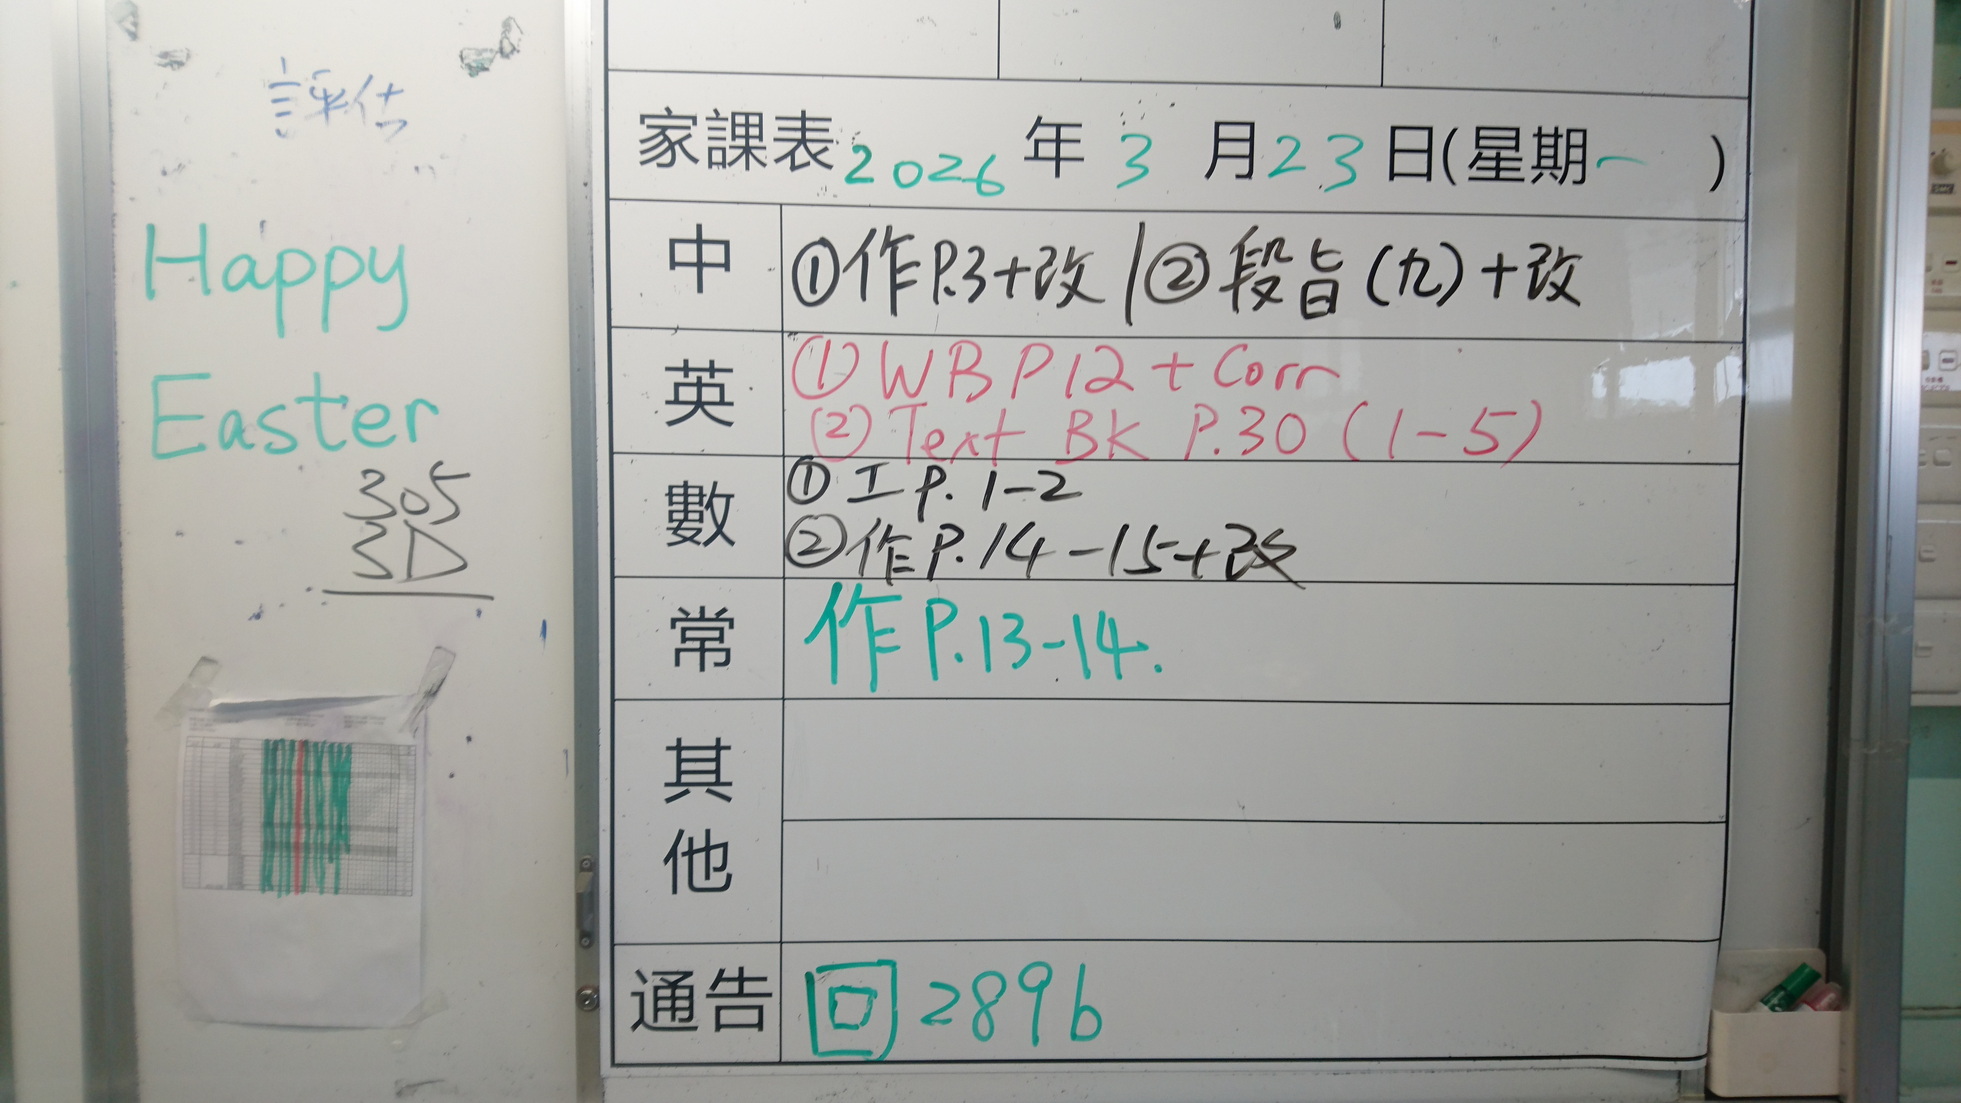 評估
Happy
Easter
305
3D
家課表 2026 年 3 月 23 日(星期一)
中 ①作P.3+改/②段旨(九)+改
英 ①WB P12 + Corr
(2) Text BK P.30 (1-5)
數 ①工P.1-2
②作P.14-15+改
常 作P.13-14.
其他
通告 回 289b